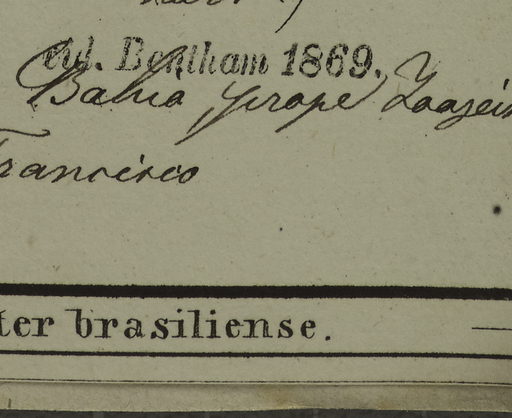 vid. Bentham 1869.
Bahia prope Joazei
Francisco
ter brasiliense.